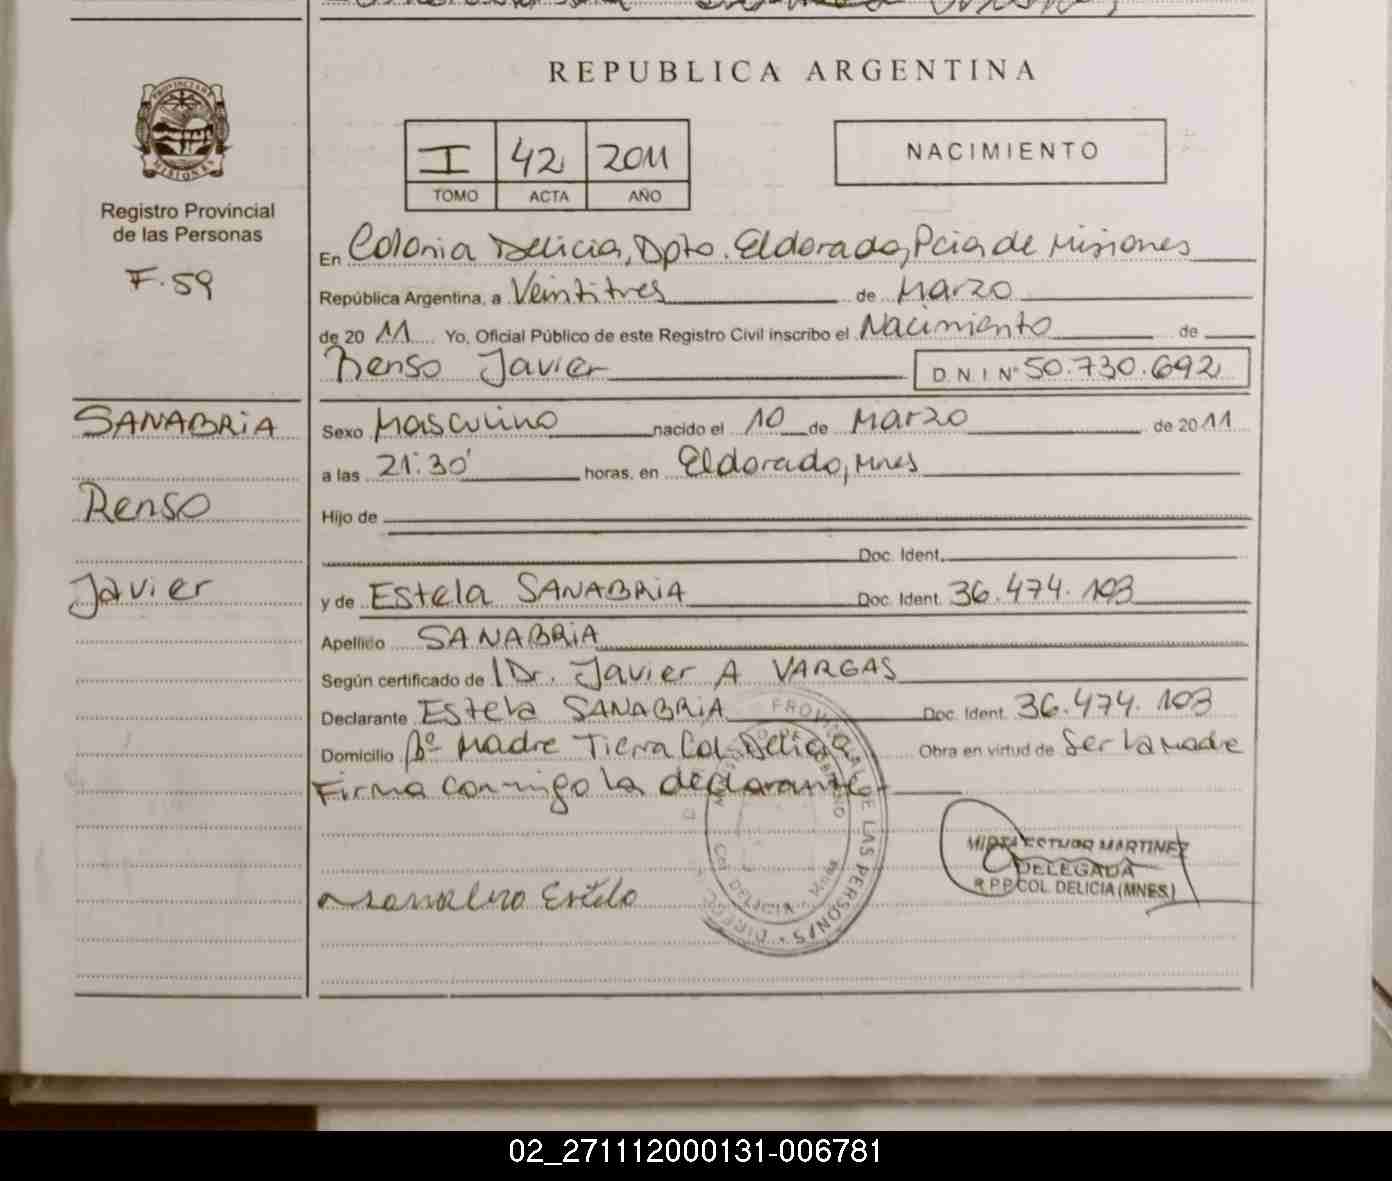 REPUBLICA ARGENTINA
PROVINCIA DE MISIONES
Registro Provincial
de las Personas
F.59
I 42 2011
TOMO ACTA AÑO
NACIMIENTO
En Colonia Delicia, Dpto. Eldorado, Pcia de Misiones
República Argentina, a Veintitres de Marzo
de 2011 Yo, Oficial Público de este Registro Civil inscribo el Nacimiento de
Renso Javier D.N.I Nº 50.730.692
SANABRIA
Renso
Javier
Sexo Masculino nacido el 10 de Marzo de 2011
a las 21:30' horas, en Eldorado, Mnes
Hijo de
Doc. Ident.
y de Estela SANABRIA Doc. Ident. 36.474.103
Apellido SANABRIA
Según certificado de Dr. Javier A VARGAS
Declarante Estela SANABRIA Doc. Ident. 36.474.103
Domicilio Bº Madre Tierra Col. Delicia Obra en virtud de Ser la Madre
Firma conmigo la declarante
PROVINCIAL DE LAS PERSONAS
COL DELICIA - Mnes
MARTINEZ
DELEGADA
R.P.P COL DELICIA (MNES)
02_271112000131-006781